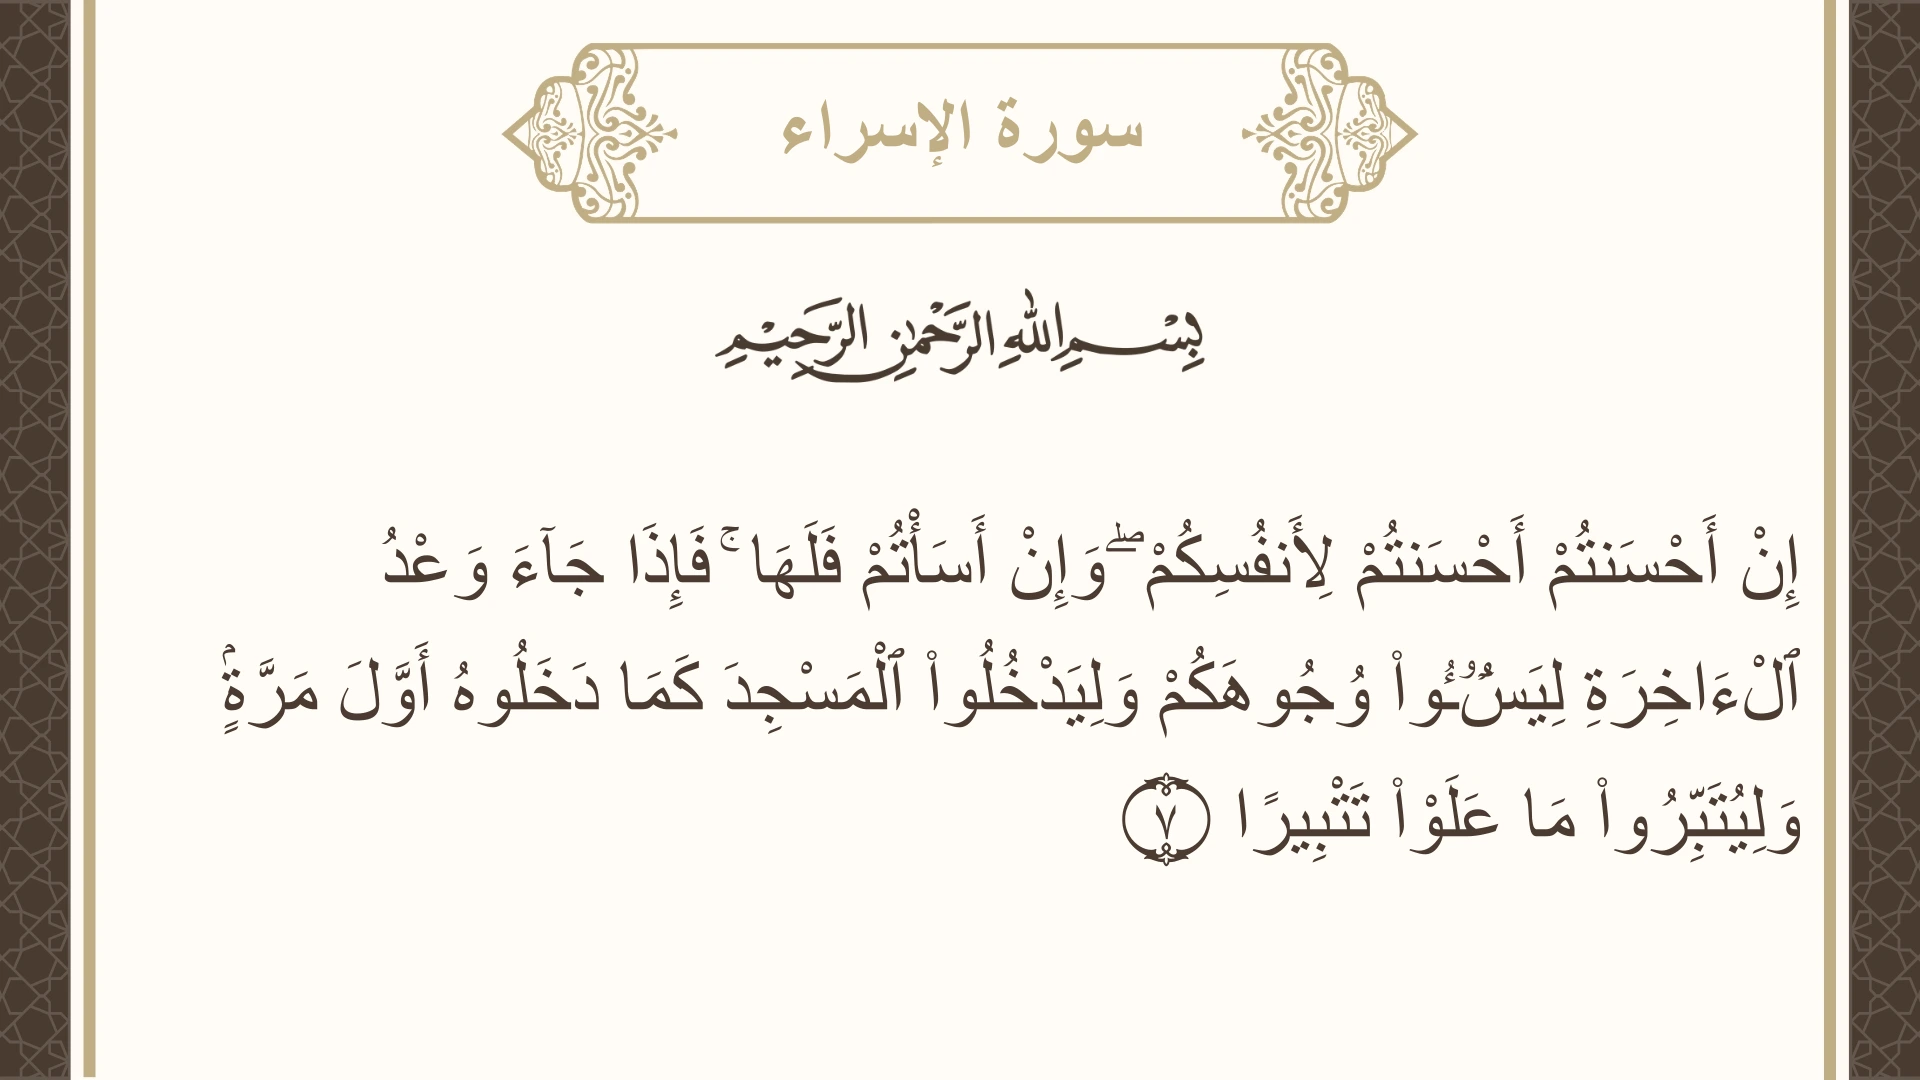 سورة الإسراء
بِسْمِ اللهِ الرَّحْمٰنِ الرَّحِيْمِ
إِنْ أَحْسَنتُمْ أَحْسَنتُمْ لِأَنفُسِكُمْ ۖ وَإِنْ أَسَأْتُمْ فَلَهَا ۚ فَإِذَا جَآءَ وَعْدُ
ٱلْءَاخِرَةِ لِيَسُـۥٓـُٔوا۟ وُجُوهَكُمْ وَلِيَدْخُلُوا۟ ٱلْمَسْجِدَ كَمَا دَخَلُوهُ أَوَّلَ مَرَّةٍۢ
وَلِيُتَبِّرُوا۟ مَا عَلَوْا۟ تَتْبِيرًا ٧